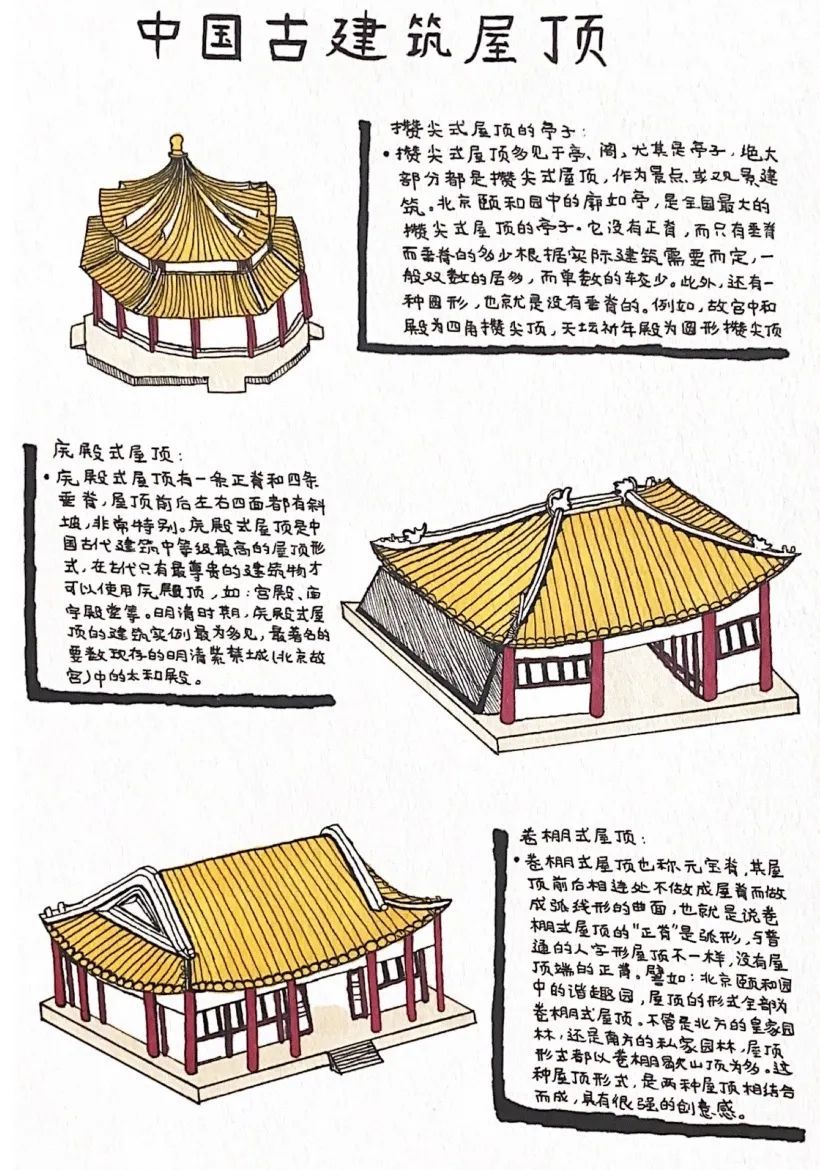 中国古建筑屋顶
攒尖式屋顶的亭子:
•攒尖式屋顶多见于亭、阁,尤其是亭子,绝大
部分都是攒尖式屋顶,作为景点或观景建
筑。北京颐和园中的廓如亭,是全国最大的
攒尖式屋顶的亭子。它没有正脊,而只有垂脊
而垂脊的多少根据实际建筑需要而定,一
般双数的居多,而单数的较少。此外,还有一
种圆形,也就是没有垂脊的。例如,故宫中和
殿为四角攒尖顶,天坛祈年殿为圆形攒尖顶
庑殿式屋顶:
•庑殿式屋顶有一条正脊和四条
垂脊,屋顶前后左右四面都有斜
坡,非常特别。庑殿式屋顶是中
国古代建筑中等级最高的屋顶形
式,在古代只有最尊贵的建筑物才
可以使用庑殿顶,如:宫殿、庙
宇殿堂等。明清时期,庑殿式屋
顶的建筑实例最为多见,最著名的
要数现存的明清紫禁城(北京故
宫)中的太和殿。
卷棚式屋顶:
•卷棚式屋顶也称元宝脊,其屋
顶前后相连处不做成屋脊而做
成弧线形的曲面,也就是说卷
棚式屋顶的"正脊"是弧形,与普
通的人字形屋顶不一样,没有屋
顶端的正脊。譬如:北京颐和园
中的谐趣园,屋顶的形式全部为
卷棚式屋顶。不管是北方的皇家园
林,还是南方的私家园林,屋顶
形式都以卷棚歇山顶为多。这
种屋顶形式,是两种屋顶相结合
而成,具有很强的创意感。